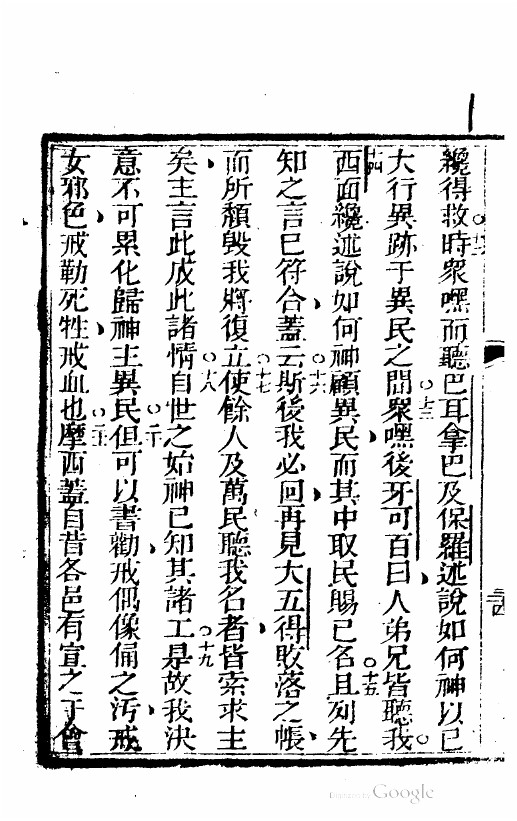 纔得救時眾嘿而聽巴耳拿巴及保羅述說如何神以己
大行異跡于異民之間十三眾嘿後牙可百曰人弟兄皆聽我
十四西面纔述說如何神顧異民而其中取民賜己名且十五列先
知之言已符合蓋云十六斯後我必回再見大五得敗落之帳
而所頹毀我將復立十七使餘人及萬民聽我名者皆索求主
矣主言此成此諸情十八自世之始神已知其諸工十九是故我決
意不可累化歸神主異民二十但可以書勸戒偶像偏之污戒
女邪色戒勒死牲戒血也摩西蓋自昔各邑有宣之于會
Digitized by Google